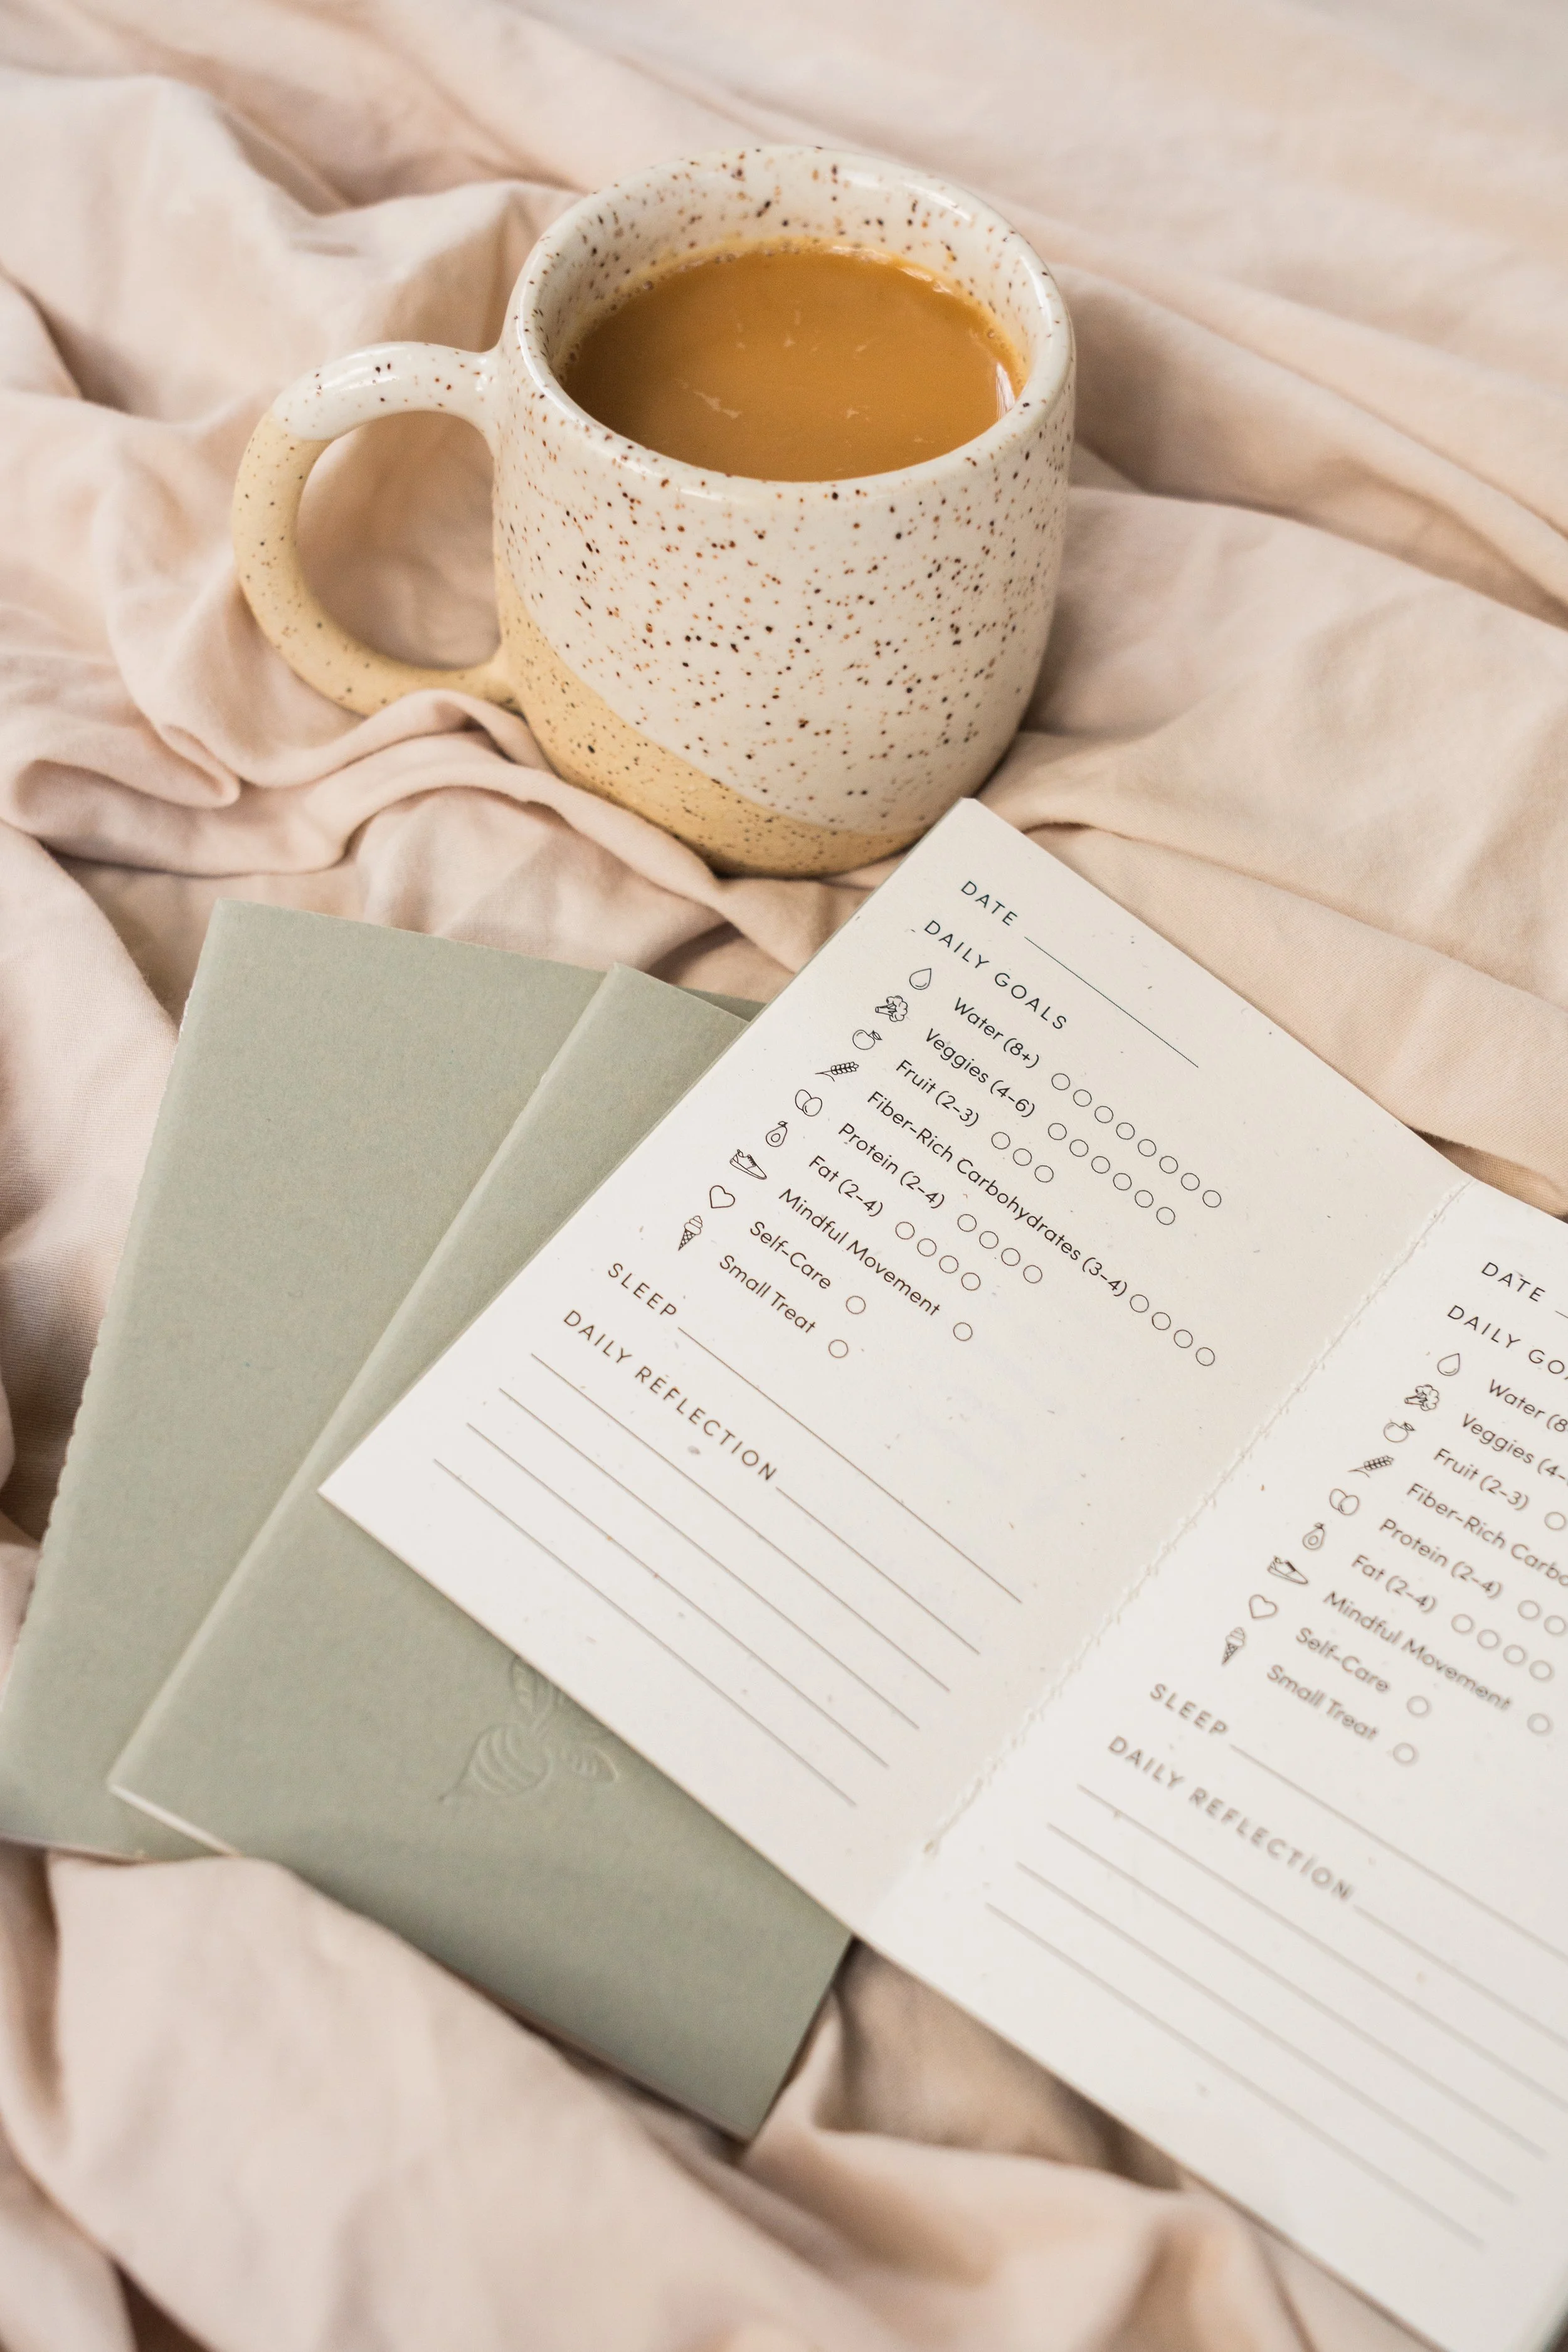 DATE
DAILY GOALS
Water (8+)
Veggies (4-6)
Fruit (2-3)
Fiber-Rich Carbohydrates (3-4)
Protein (2-4)
Fat (2-4)
Mindful Movement
Self-Care
Small Treat
SLEEP
DAILY REFLECTION
DATE
DAILY GO
Water (8
Veggies (4-
Fruit (2-3)
Fiber-Rich Carbo
Protein (2-4)
Fat (2-4)
Mindful Movement
Self-Care
Small Treat
SLEEP
DAILY REFLECTION